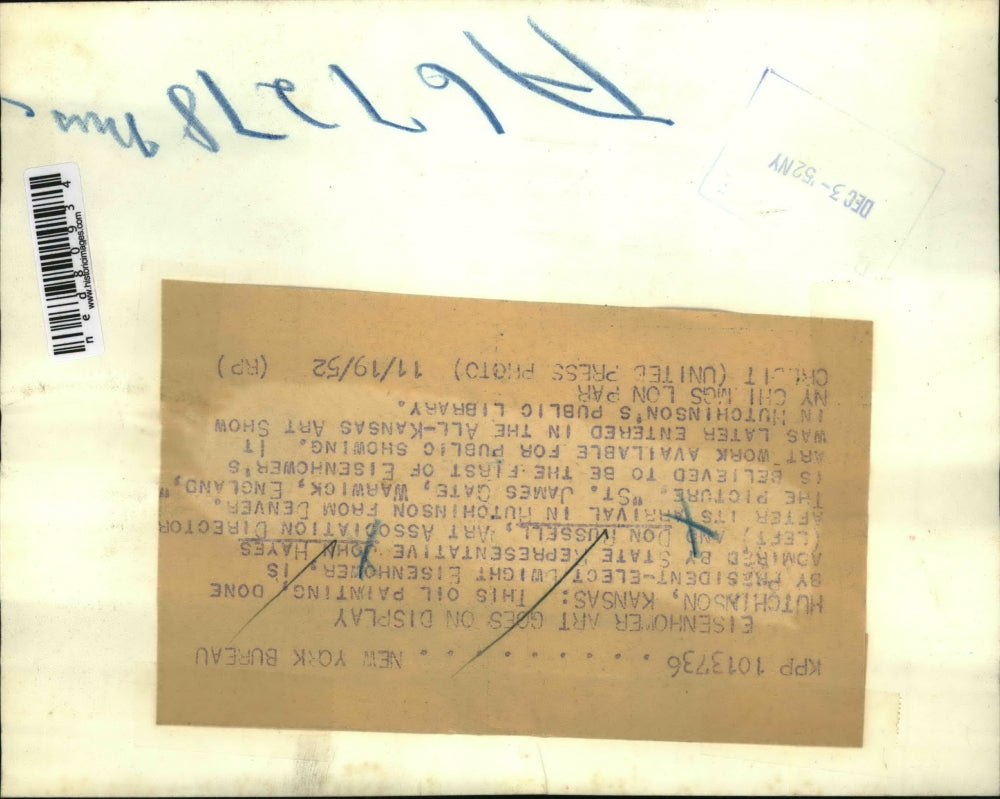 KPP 1013736 . . . . . . . . . NEW YORK BUREAU
EISENHOWER ART GOES ON DISPLAY
HUTCHINSON, KANSAS: THIS OIL PAINTING, DONE
BY PRESIDENT-ELECT DWIGHT EISENHOWER, IS
ADMIRED BY STATE REPRESENTATIVE JOHN HAYES
(LEFT) AND DON RUSSELL, ART ASSOCIATION DIRECTOR
AFTER ITS ARRIVAL IN HUTCHINSON FROM DENVER.
THE PICTURE, "ST. JAMES GATE, WARWICK, ENGLAND,"
IS BELIEVED TO BE THE FIRST OF EISENHOWER'S
ART WORK AVAILABLE FOR PUBLIC SHOWING. IT
WAS LATER ENTERED IN THE ALL-KANSAS ART SHOW
IN HUTCHINSON'S PUBLIC LIBRARY.
NY CHI WGS LON PAR
CREDIT (UNITED PRESS PHOTO) 11/19/52 (RP)
DEC 3-'52 NY
ned80934
www.historicimages.com